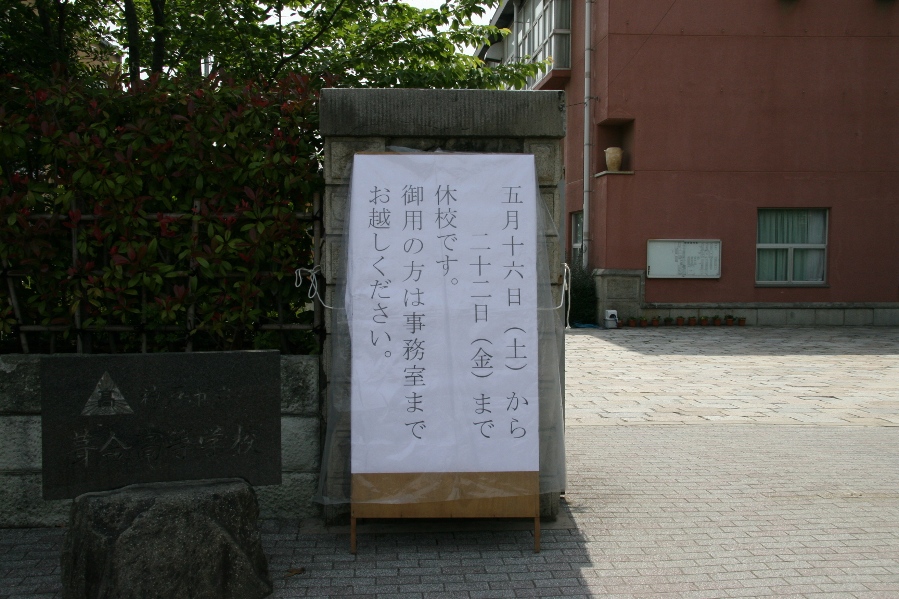 五月十六日（土）から
二十二日（金）まで
休校です。
御用の方は事務室まで
お越しください。